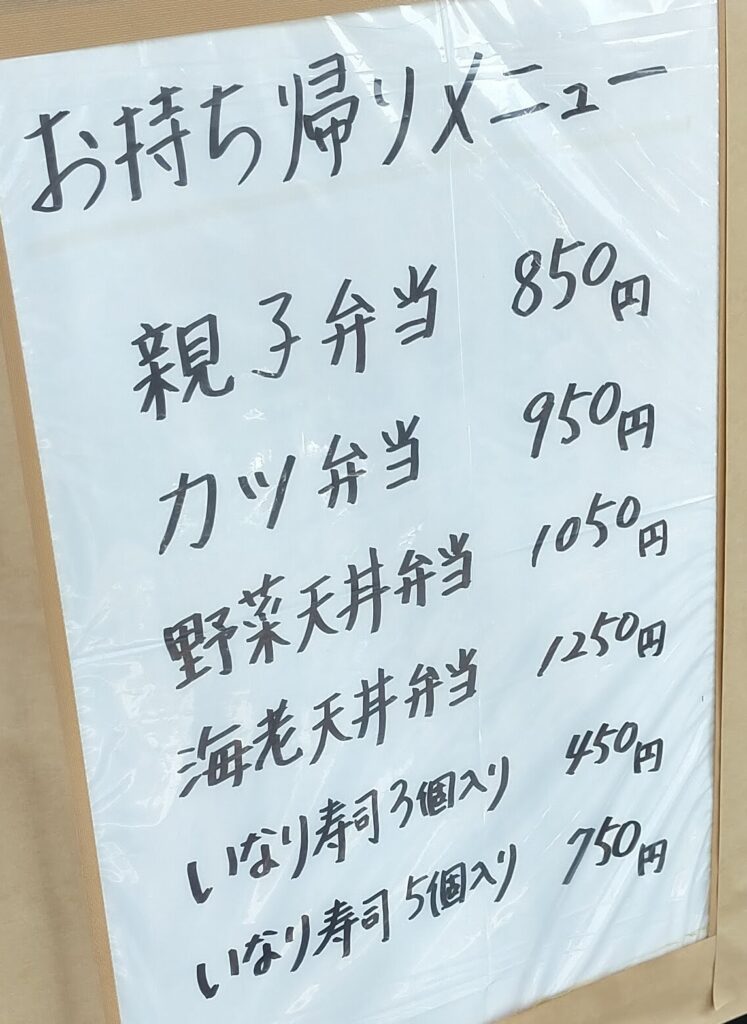 お持ち帰りメニュー
親子弁当 850円
カツ弁当 950円
野菜天丼弁当 1050円
海老天丼弁当 1250円
いなり寿司3個入り 450円
いなり寿司5個入り 750円